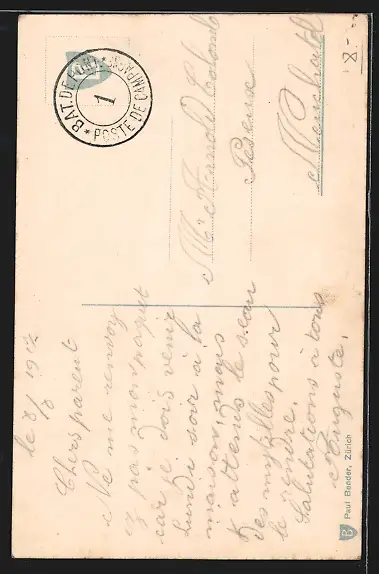 BAT. DE PONT. 1
* POSTE DE CAMPAGNE *
8-
Mr Arnold Colomb
Peseux
Neuchatel
le 8/8 1917
Chers parent
Ne me renvoy
ez pas mon paquet
car je dois venir
lundi soir à la
maison, mais
j attends le seau
des myrtilles pour
le rendre.
Salutations à tous
Auguste.
Paul Bender, Zürich